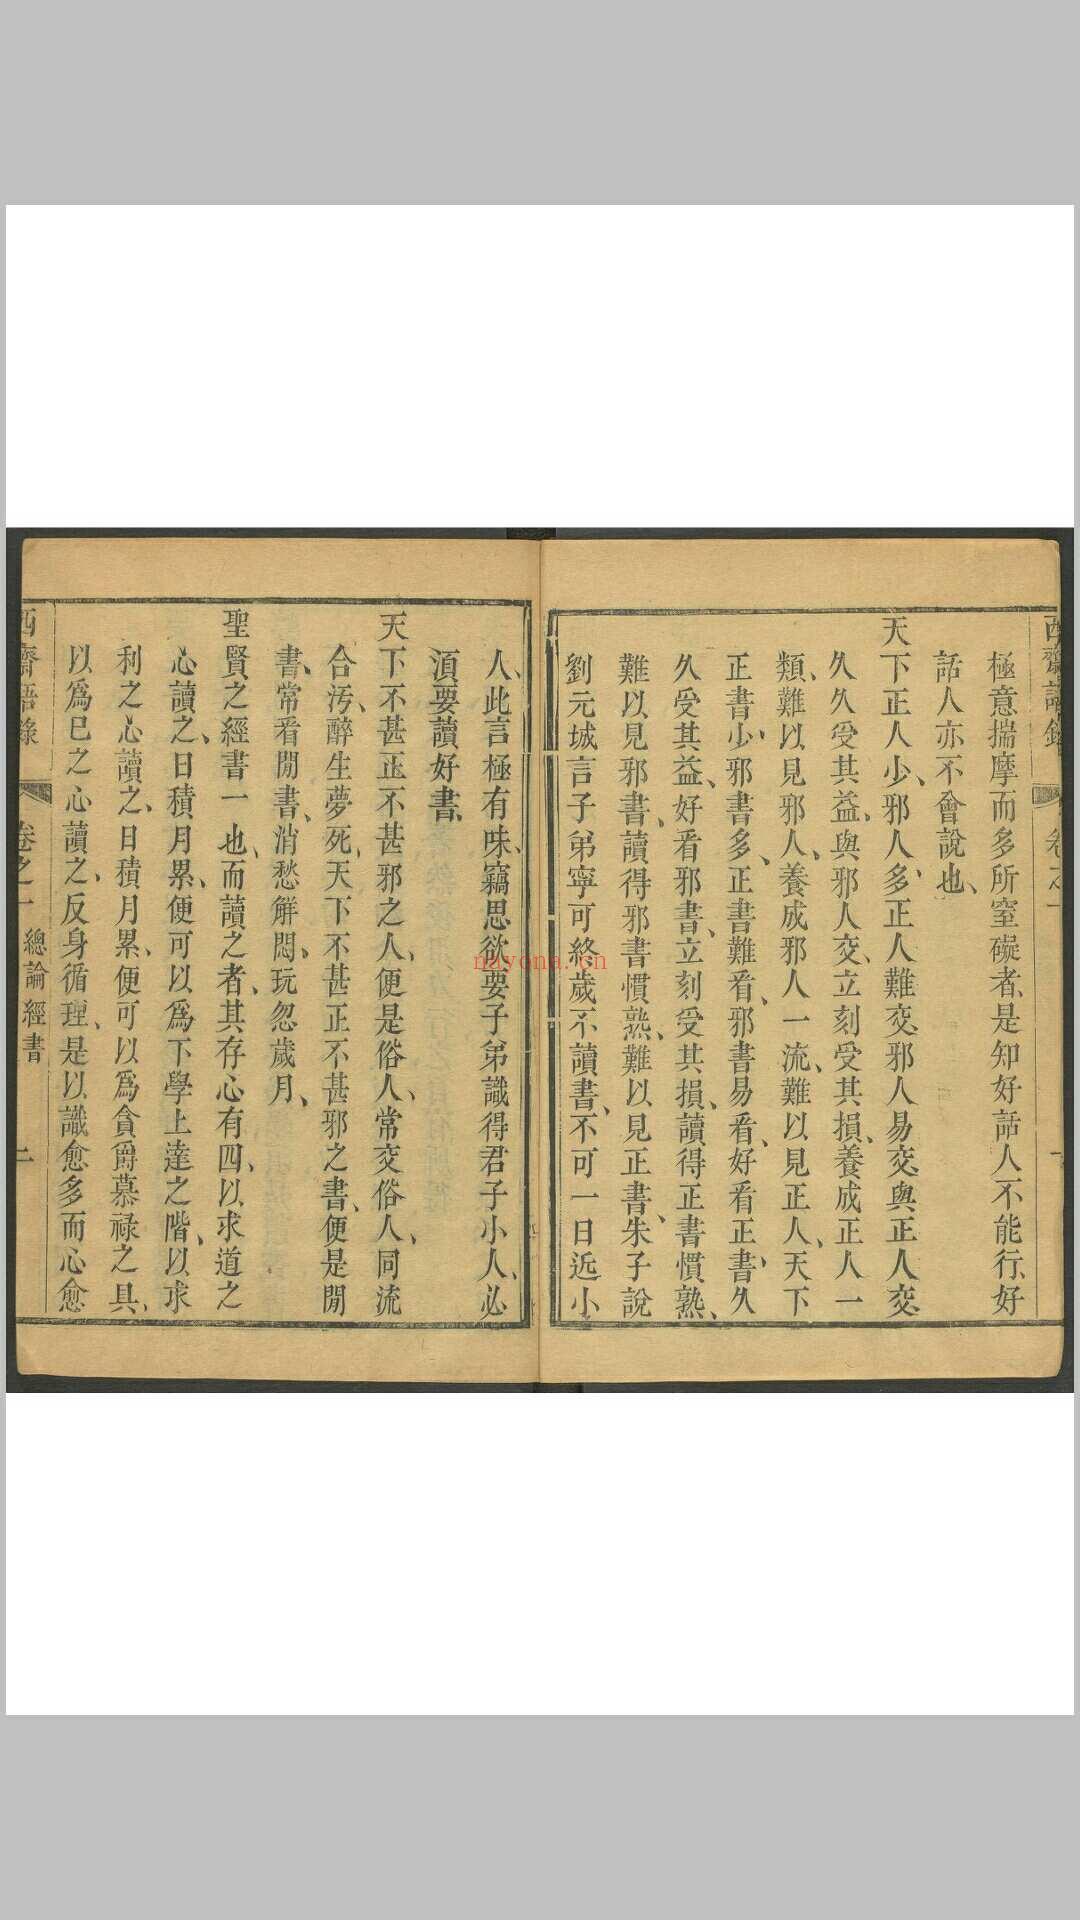 極意揣摩而多所窒礙者、是知好話人不能行、好
話人亦不會說也、
天下正人少、邪人多、正人難交、邪人易交、與正人交
久久受其益、與邪人交、立刻受其損、養成正人一
類、難以見邪人、養成邪人一流、難以見正人、天下
正書少、邪書多、正書難看、邪書易看、好看正書、久
久受其益、好看邪書、立刻受其損、讀得正書慣熟、
難以見邪書、讀得邪書慣熟、難以見正書、朱子說
劉元城言子弟寧可終歲不讀書、不可一日近小
人、此言極有味、竊思欲要子弟識得君子小人、必
須要讀好書、
天下不甚正不甚邪之人、便是俗人、常交俗人、同流
合污、醉生夢死、天下不甚正不甚邪之書、便是閒
書、常看閒書、消愁解悶、玩忽歲月、
聖賢之經書一也、而讀之者、其存心有四、以求道之
心讀之、日積月累、便可以爲下學上達之階、以求
利之心讀之、日積月累、便可以爲貪爵慕祿之具、
以爲已之心讀之、反身循理、是以識愈多而心愈
西齋語錄 卷之一 總論經書 二
nayona.cn